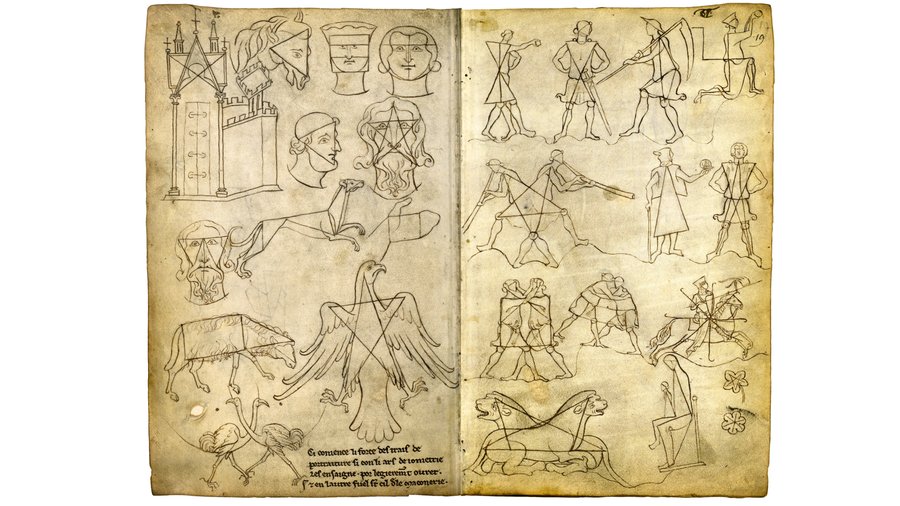 19
Ci comence li force des trais de
portraiture si con li ars de iometrie
les ensaigne · por legierem̅t ovrer.
⁊ en lautre fuel s̅t cil d̅le maconerie.